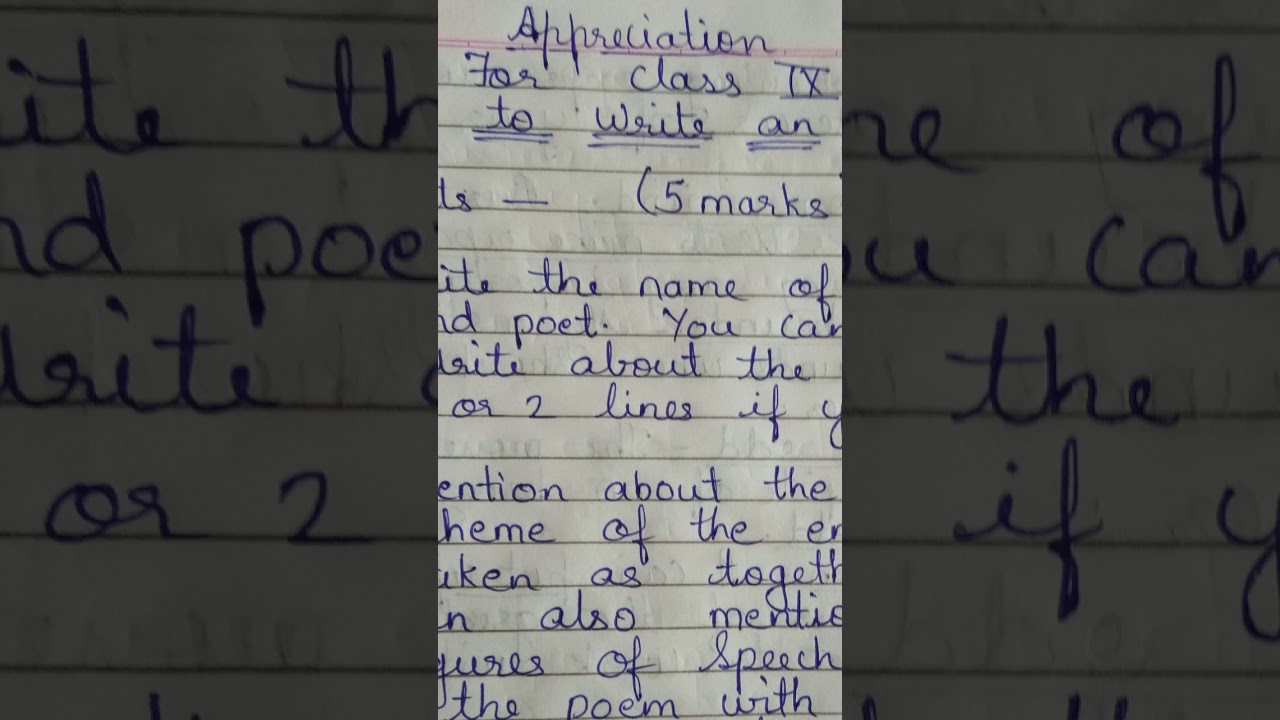 Appreciation
For class IX
to write an
ts — (5 marks
ite the name of
nd poet. You can
write about the
or 2 lines if y
ention about the
heme of the en
aken as togeth
n also mentio
gures of Speech
the poem with